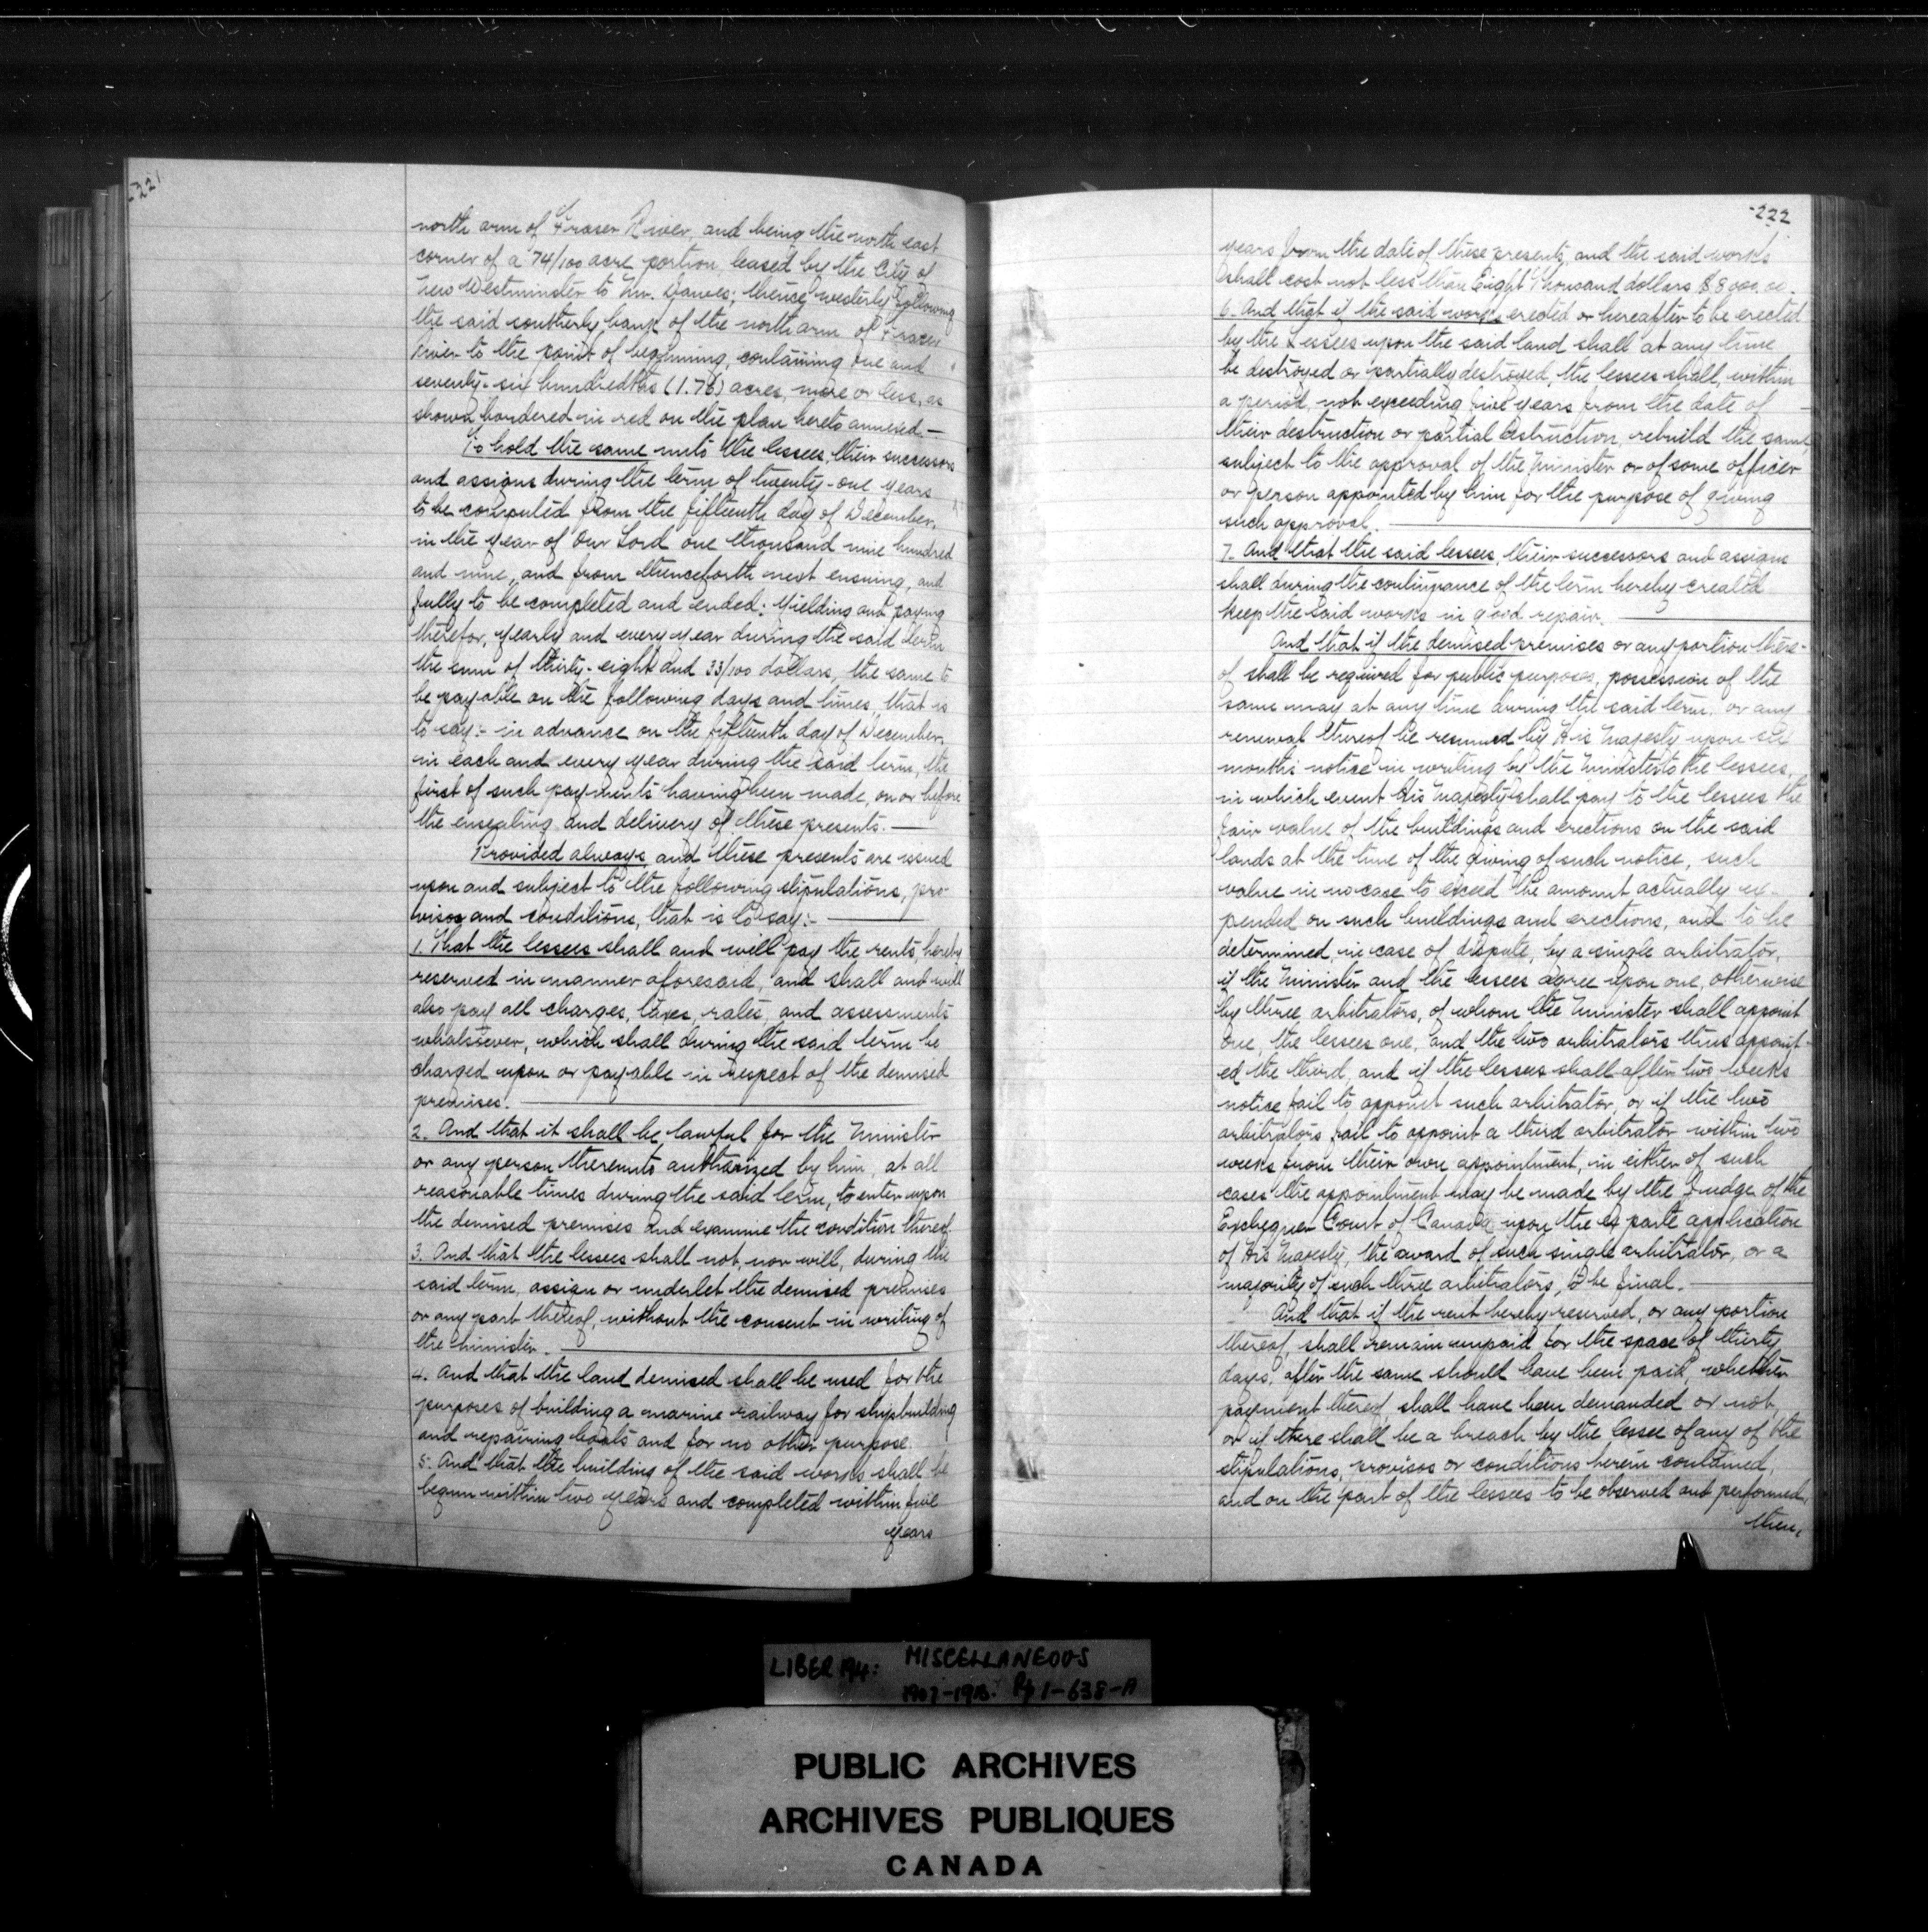 221
north arm of Fraser River, and being the north east
corner of a 74/100 acre portion, leased by the City of
New Westminster to Mr. Dawes; thence westerly following
the said southerly bank of the north arm of Fraser
River to the point of beginning, containing one and
seventy-six hundredths (1.76) acres, more or less, as
shown bordered in red on the plan hereto annexed.—
To hold the same unto the lessees, their successors
and assigns during the term of twenty-one years
to be computed from the fifteenth day of December,
in the year of Our Lord one thousand nine hundred
and nine, and from thenceforth next ensuing, and
fully to be completed and ended: Yielding and paying
therefor, yearly and every year during the said term
the sum of thirty-eight and 33/100 dollars, the same to
be payable on the following days and times, that is
to say:- in advance on the fifteenth day of December,
in each and every year during the said term, the
first of such payments having been made, on or before
the ensealing and delivery of these presents.—
Provided always, and these presents are issued
upon and subject to the following stipulations, pro-
visos and conditions, that is to say:-
1. That the lessees shall and will pay the rents, hereby
reserved in manner aforesaid, and shall and will
also pay all charges, taxes, rates, and assessments
whatsoever, which shall during the said term be
charged upon or payable in respect of the demised
premises.
2. And that it shall be lawful for the Minister
or any person thereunto authorized by him, at all
reasonable times during the said term, to enter upon
the demised premises and examine the condition thereof.
3. And that the lessees shall not, nor will, during the
said term, assign or underlet the demised premises
or any part thereof, without the consent in writing of
the Minister.
4. And that the land demised shall be used for the
purposes of building a marine railway for shipbuilding
and repairing boats and for no other purpose.
5. And that the building of the said works shall be
begun within two years and completed within five
years
-222
years from the date of these presents, and the said works
shall cost not less than Eight Thousand dollars $8000.00.
6. And that if the said works erected or hereafter to be erected
by the Lessees upon the said land shall at any time
be destroyed or partially destroyed, the lessees shall, within
a period, not exceeding five years from the date of
their destruction or partial destruction, rebuild the same,
subject to the approval of the Minister or of some officer
or person appointed by him for the purpose of giving
such approval.
7. And that the said lessees, their successors and assigns
shall during the continuance of the term hereby created
keep the said works in good repair.
And that if the demised premises or any portion there-
of shall be required for public purposes, possession of the
same may at any time during the said term, or any
renewal thereof be resumed by His Majesty upon six
months notice in writing by the Minister to the lessees,
in which event His Majesty shall pay to the lessees the
fair value of the buildings and erections on the said
lands at the time of the giving of such notice, such
value in no case to exceed the amount actually ex-
pended on such buildings and erections, and to be
determined, in case of dispute, by a single arbitrator,
if the Minister and the lessees agree upon one, otherwise
by three arbitrators, of whom the Minister shall appoint
one, the lessees one, and the two arbitrators thus appoint-
ed the third, and if the lessees shall after two weeks
notice fail to appoint such arbitrator, or if the two
arbitrators fail to appoint a third arbitrator within two
weeks from their own appointment, in either of such
cases the appointment may be made by the Judge of the
Exchequer Court of Canada upon the ex parte application
of His Majesty, the award of such single arbitrator, or a
majority of such three arbitrators, to be final.
And that if the rent hereby reserved, or any portion
thereof, shall remain unpaid for the space of thirty
days, after the same should have been paid, whether
payment thereof, shall have been demanded or not,
or if there shall be a breach by the lessee of any of the
stipulations, provisos or conditions herein contained,
and on the part of the lessees to be observed and performed,
then,
LIBER 194: MISCELLANEOUS
1907-1913. Pp 1-638-A
PUBLIC ARCHIVES
ARCHIVES PUBLIQUES
CANADA